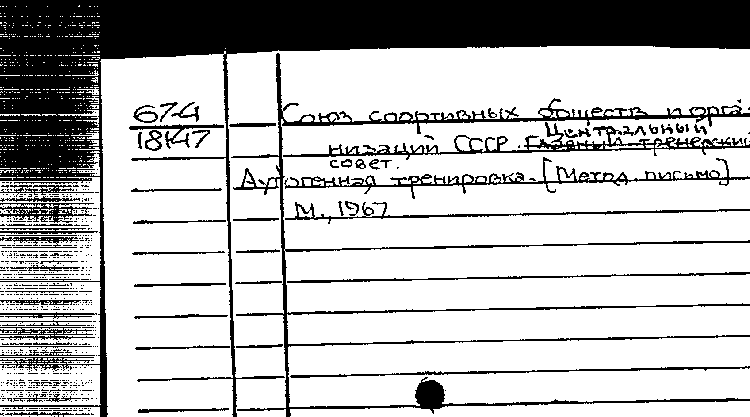 67-4
18147
Союз спортивных обществ и орга-
Центральный
низаций СССР. Главный тренерский
совет.
Аутогенная тренировка. [Метод. письмо]
М., 1967